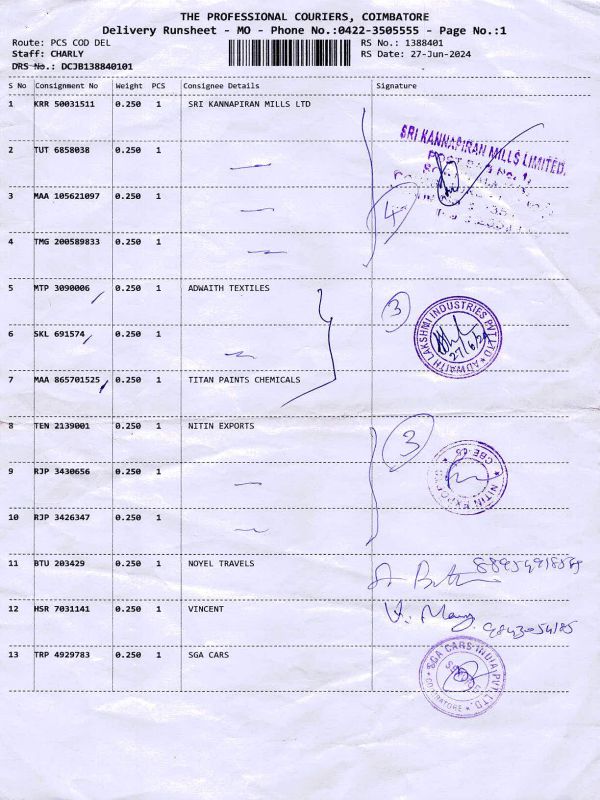 THE PROFESSIONAL COURIERS, COIMBATORE
Delivery Runsheet - MO - Phone No.:0422-3505555 - Page No.:1
Route: PCS COD DEL RS No.: 1388401
Staff: CHARLY RS Date: 27-Jun-2024
DRS No.: DCJB138840101
S No Consignment No Weight PCS Consignee Details Signature
1 KRR 50031511 0.250 1 SRI KANNAPIRAN MILLS LTD
SRI KANNAPIRAN MILLS LIMITED.
2 TUT 6858038 0.250 1
3 MAA 105621097 0.250 1
4
4 TMG 200589833 0.250 1
5 MTP 3090006 0.250 1 ADWAITH TEXTILES
3
ADWAITH LAKSHMI INDUSTRIES PVT LTD
27/6/24
6 SKL 691574 0.250 1
7 MAA 865701525 0.250 1 TITAN PAINTS CHEMICALS
8 TEN 2139001 0.250 1 NITIN EXPORTS
3
NITIN EXPORTS
9 RJP 3430656 0.250 1
10 RJP 3426347 0.250 1
11 BTU 203429 0.250 1 NOYEL TRAVELS
12 HSR 7031141 0.250 1 VINCENT
9843054185
13 TRP 4929783 0.250 1 SGA CARS
SGA CARS INDIA PVT. LTD.
COIMBATORE